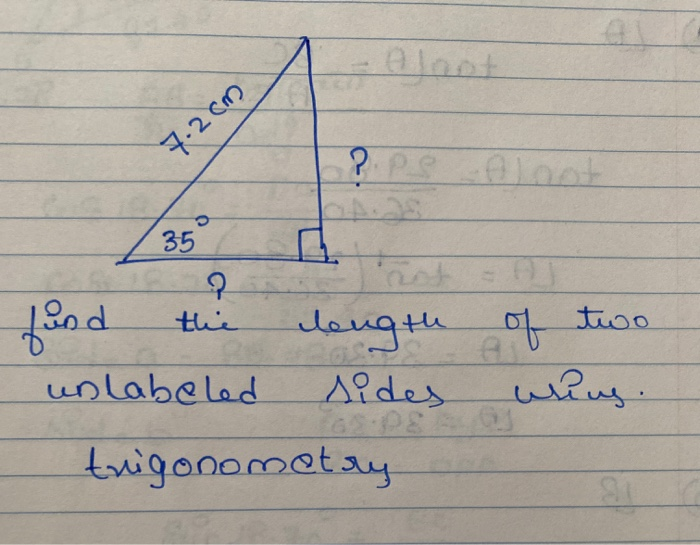 7.2 cm
?
35°
?
find the length of two
unlabeled sides using.
trigonometry